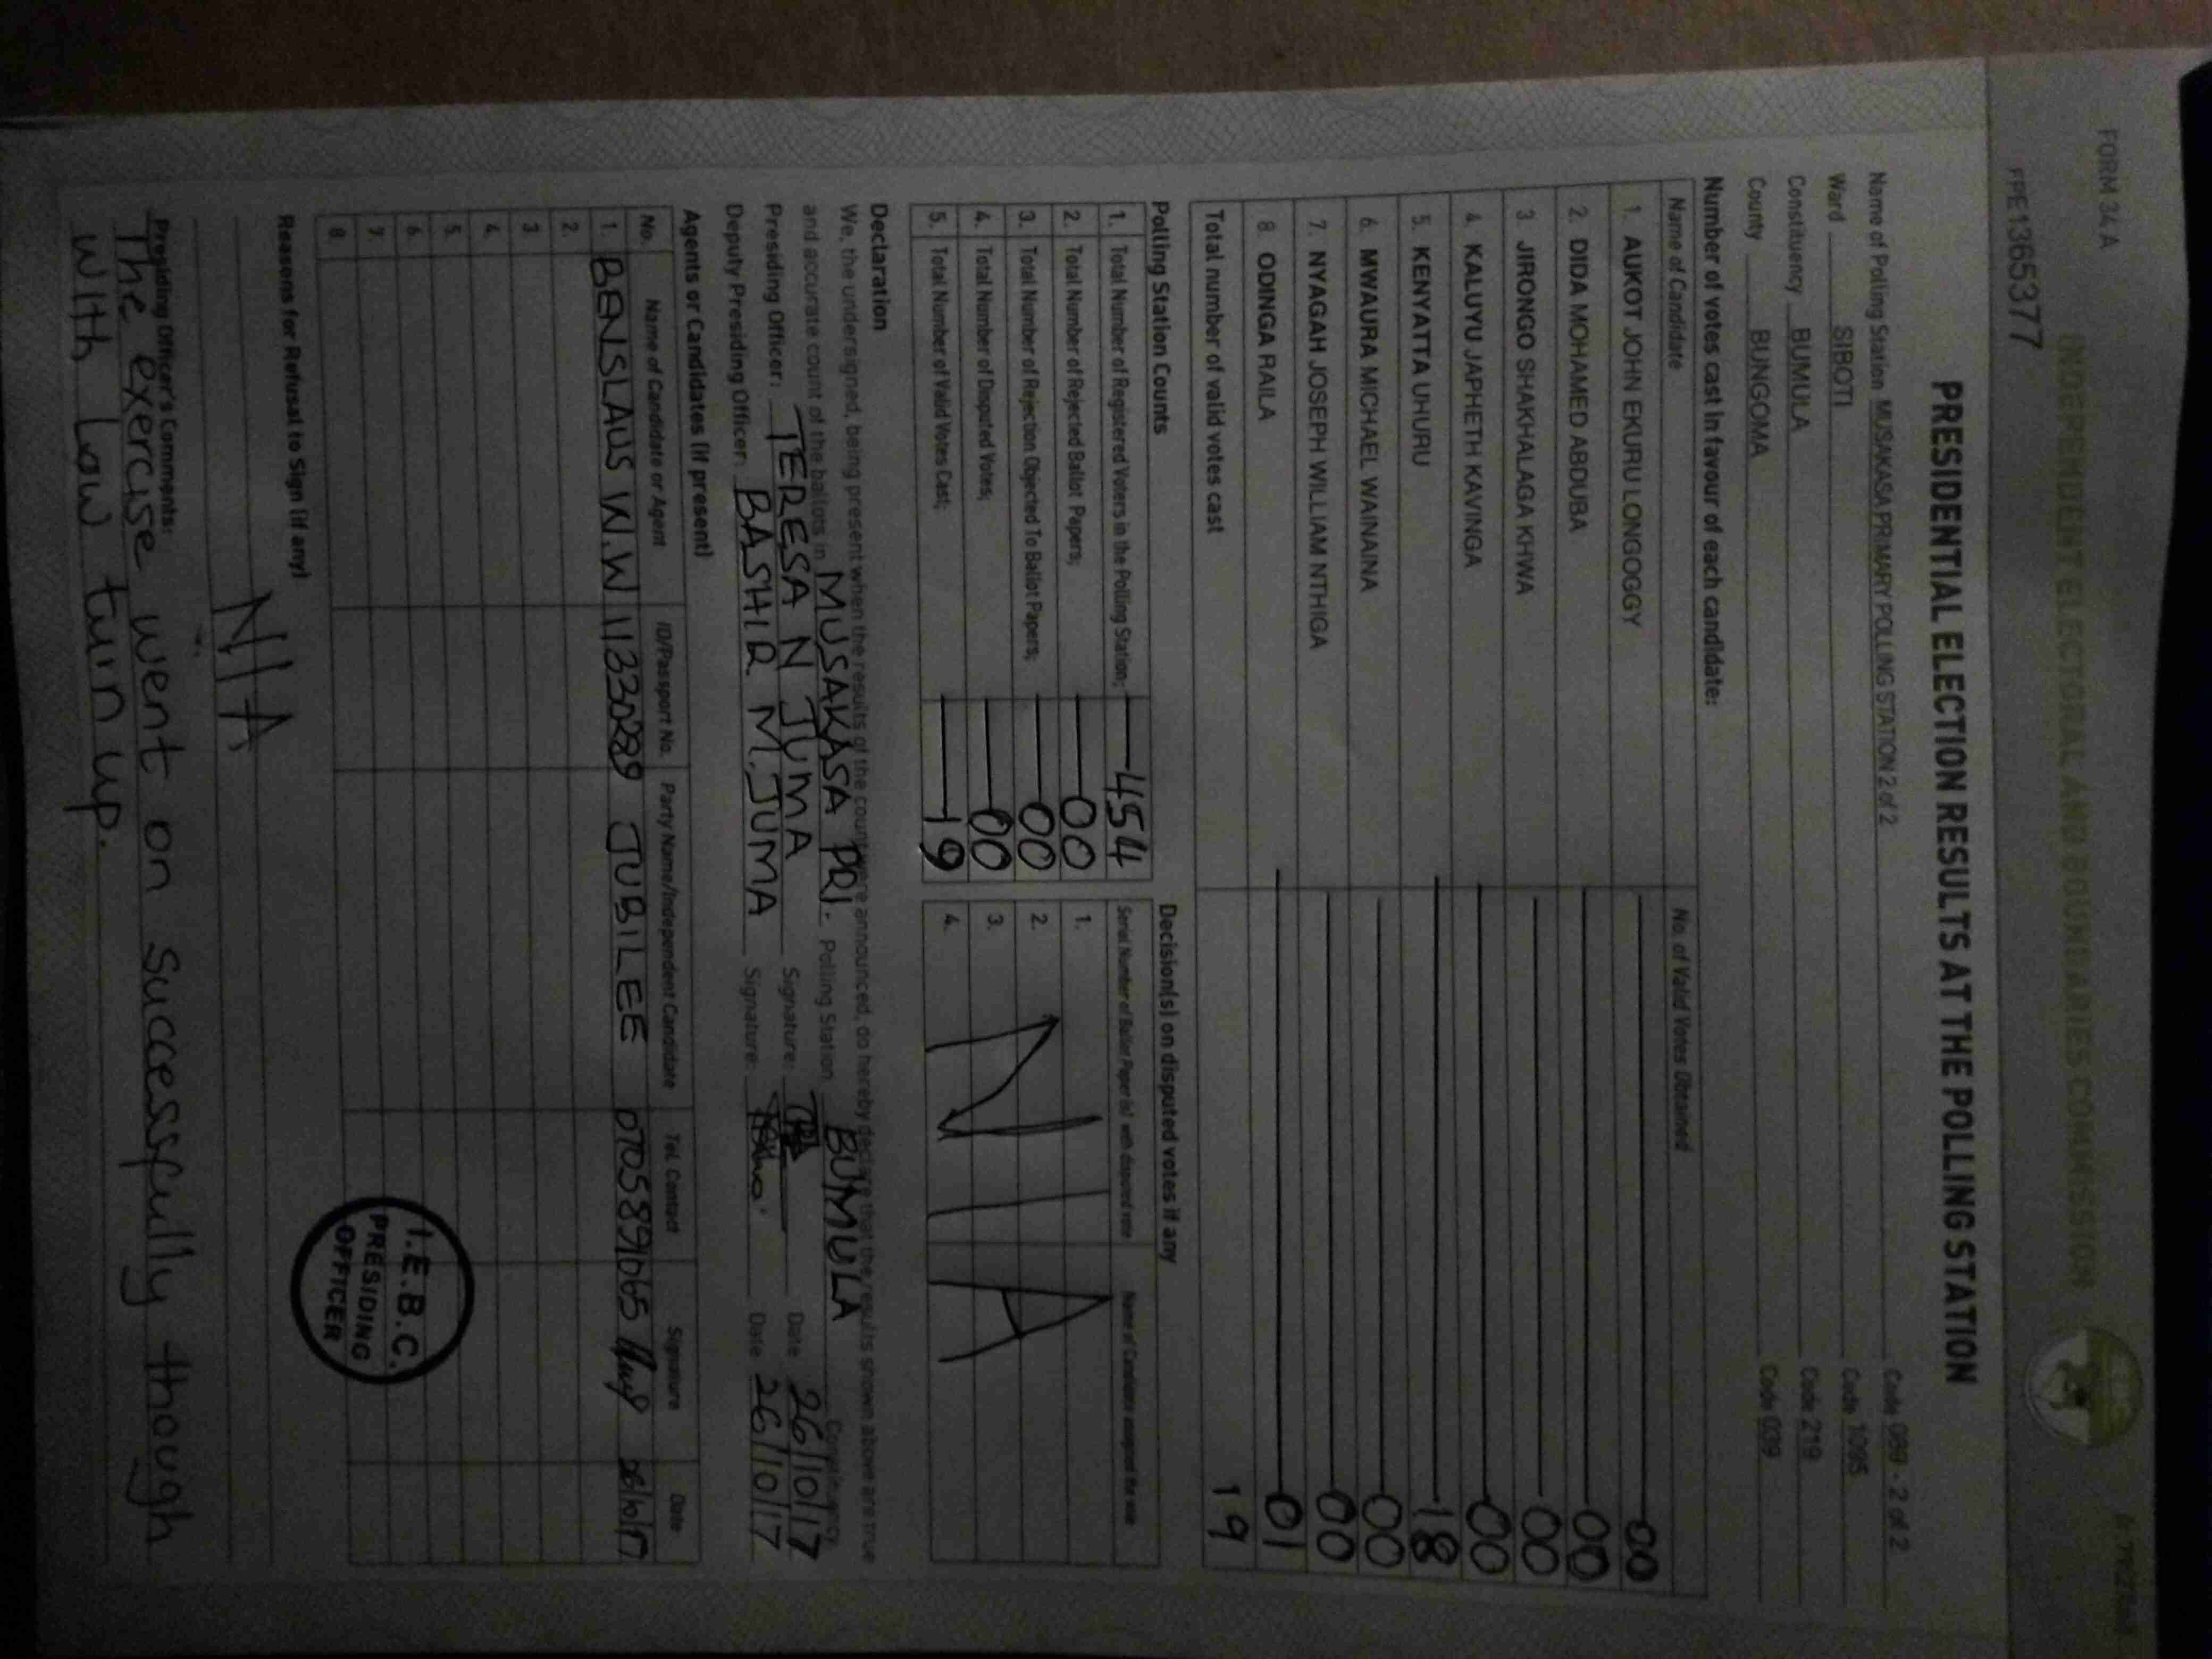 FORM 34A
INDEPENDENT ELECTORAL AND BOUNDARIES COMMISSION
FPE1365377
PRESIDENTIAL ELECTION RESULTS AT THE POLLING STATION
Name of Polling Station MUSAKASA PRIMARY POLLING STATION 2 of 2 Code 089 - 2 of 2
Ward SIBOTI Code 1095
Constituency BUMULA Code 219
County BUNGOMA Code 039
Number of votes cast in favour of each candidate:
Name of Candidate No. of Valid Votes Obtained
1. AUKOT JOHN EKURU LONGOGGY 00
2. DIDA MOHAMED ABDUBA 00
3. JIRONGO SHAKHALAGA KHWA 00
4. KALUYU JAPHETH KAVINGA 00
5. KENYATTA UHURU 18
6. MWAURA MICHAEL WAINAINA 00
7. NYAGAH JOSEPH WILLIAM NTHIGA 00
8. ODINGA RAILA 01
Total number of valid votes cast 19
Polling Station Counts
1. Total Number of Registered Voters in the Polling Station; 454
2. Total Number of Rejected Ballot Papers; 00
3. Total Number of Rejection Objected To Ballot Papers; 00
4. Total Number of Disputed Votes; 00
5. Total Number of Valid Votes Cast; 19
Decision(s) on disputed votes if any
Serial Number of Ballot Paper(s) with disputed vote Name of Candidate
1.
2.
3.
4.
N/A
Declaration
We, the undersigned, being present when the results of the count were announced, do hereby declare that the results shown above are true
and accurate count of the ballots in MUSAKASA PRI. Polling Station BUMULA Constituency
Presiding Officer: TERESA N JUMA Signature: Date 26/10/17
Deputy Presiding Officer: BASHIR M. JUMA Signature: Date 26/10/17
Agents or Candidates (if present)
No. Name of Candidate or Agent ID/Passport No. Party Name/Independent Candidate Tel. Contact Signature Date
1. BENSLAUS W.W 11330289 JUBILEE 0705891065
2.
3.
4.
5.
6.
7.
8.
I.E.B.C.
PRESIDING
OFFICER
Reasons for Refusal to Sign (if any)
N/A
Presiding Officer's Comments:
The exercise went on successfully though
with Low turn up.